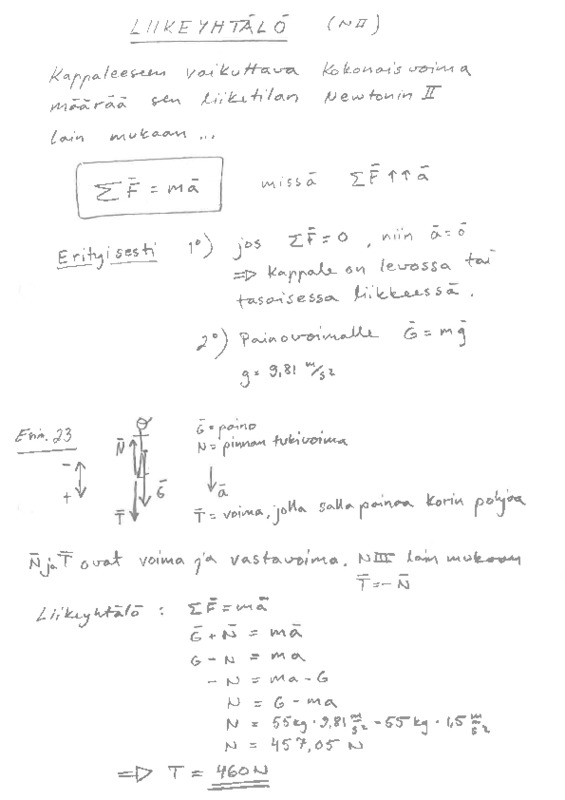 LIIKEYHTÄLÖ (NII)
Kappaleeseen vaikuttava kokonaisvoima
määrää sen liiketilan Newtonin II
lain mukaan ...
ΣF̄ = mā missä ΣF̄ ↑↑ ā
Erityisesti 1°) jos ΣF̄ = 0, niin ā = 0̄
=> kappale on levossa tai
tasaisessa liikkeessä.
2°) Painovoimalle Ḡ = mḡ
g = 9,81 m/s²
Esim. 23
Ḡ = paino
N = pinnan tukivoima
N̄
-
+
Ḡ
ā
T̄
T̄ = voima, jolla salla painaa korin pohjaa
N̄ ja T̄ ovat voima ja vastavoima. NIII lain mukaan
T̄ = -N̄
Liikeyhtälö : ΣF̄ = mā
Ḡ + N̄ = mā
G - N = ma
-N = ma - G
N = G - ma
N = 55 kg · 9,81 m/s² - 55 kg · 1,5 m/s²
N = 457,05 N
=> T = 460 N